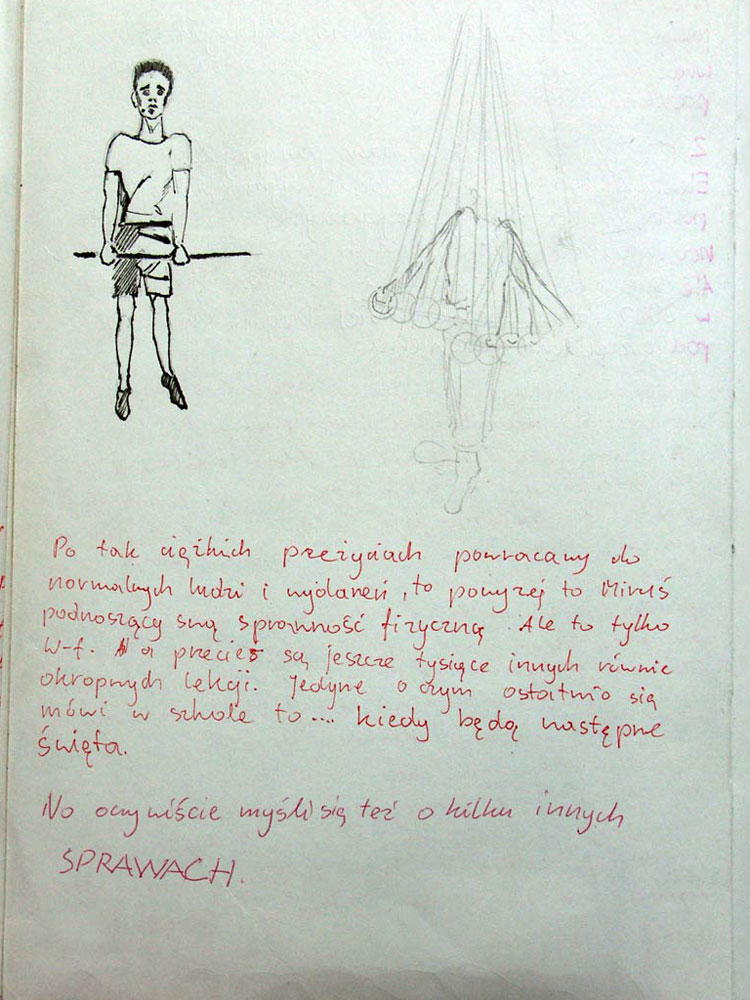 Po tak ciężkich przeżyciach powracamy do
normalnych ludzi i wydarzeń, to powyżej to Miruś
podnoszący swą sprawność fizyczną. Ale to tylko
W-f. A przecież są jeszcze tysiące innych równie
okropnych lekcji. Jedyne o czym ostatnio się
mówi w szkole to .... kiedy będą następne
święta.
No oczywiście myśli się też o kilku innych
SPRAWACH.